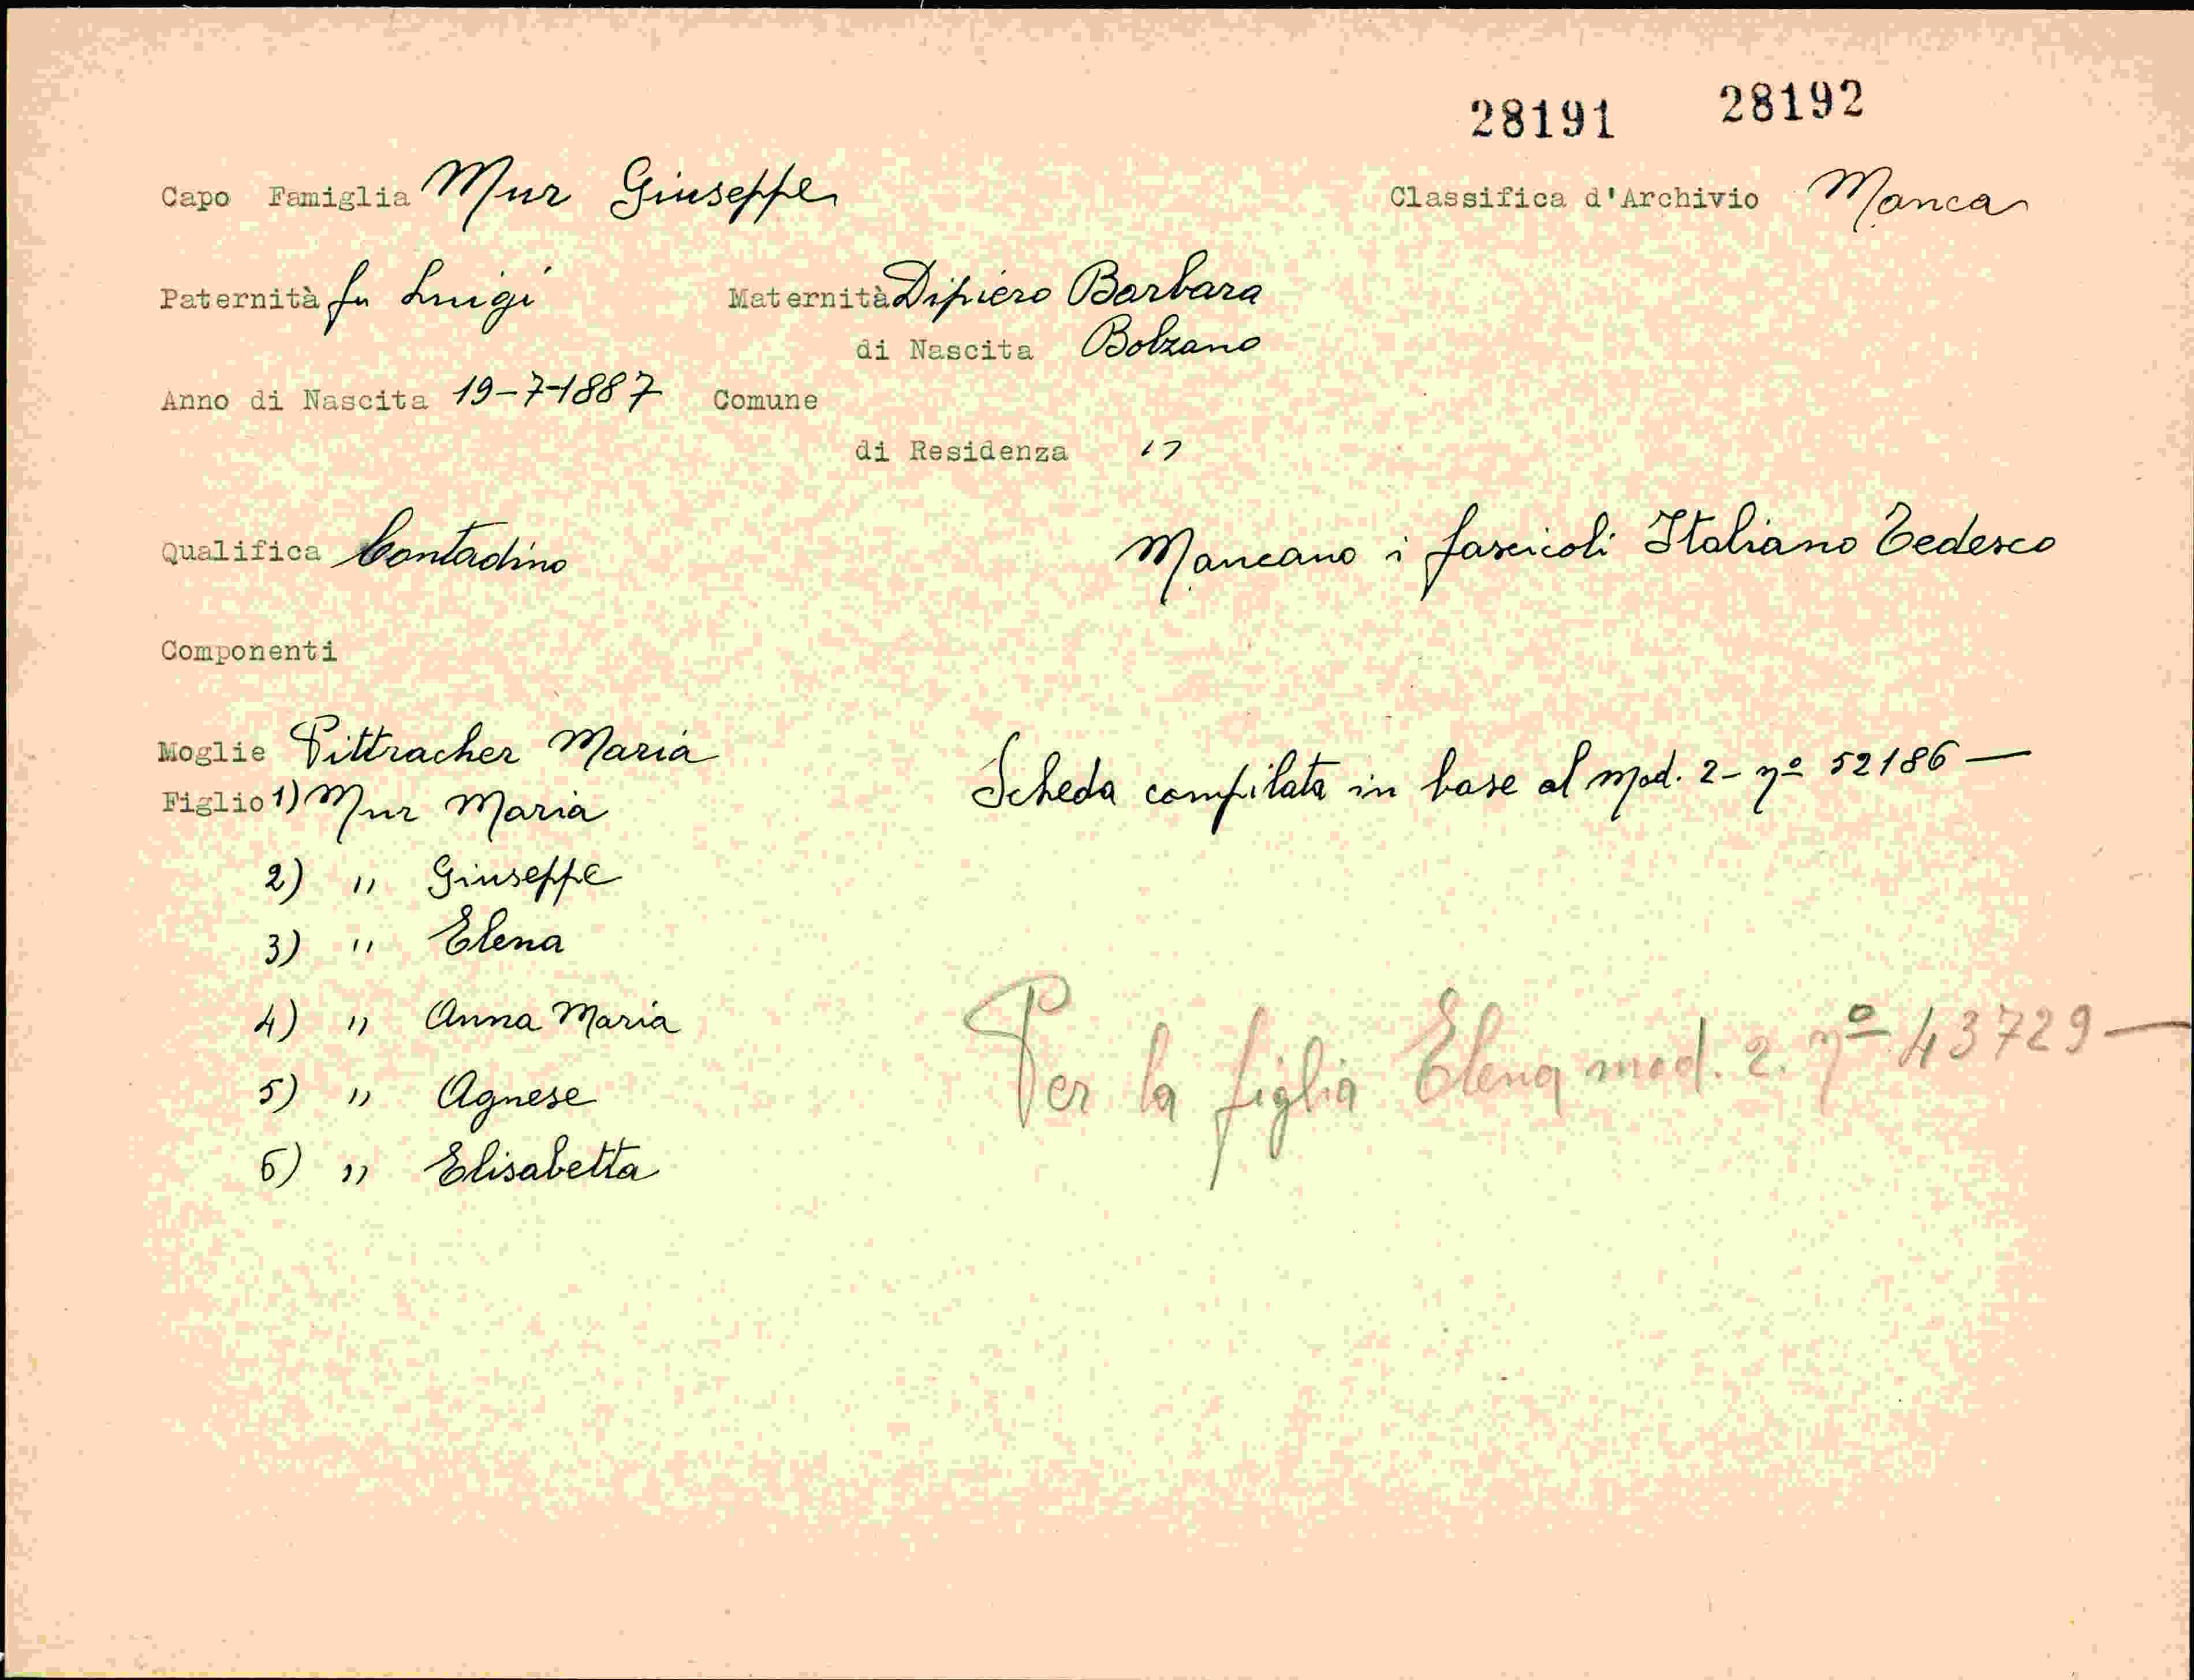 28191 28192
Capo Famiglia Mur Giuseppe Classifica d'Archivio Manca
Paternità fu Luigi Maternità Dipiero Barbara
di Nascita Bolzano
Anno di Nascita 19-7-1887 Comune
di Residenza "
Qualifica Contadino Mancano i fascicoli Italiano Tedesco
Componenti
Moglie Pittracher Maria
Scheda compilata in base al mod. 2- nº 52186 —
Figlio 1) Mur Maria
2) " Giuseppe
3) " Elena
4) " Anna Maria
Per la figlia Elena mod. 2. nº 43729 —
5) " Agnese
6) " Elisabetta